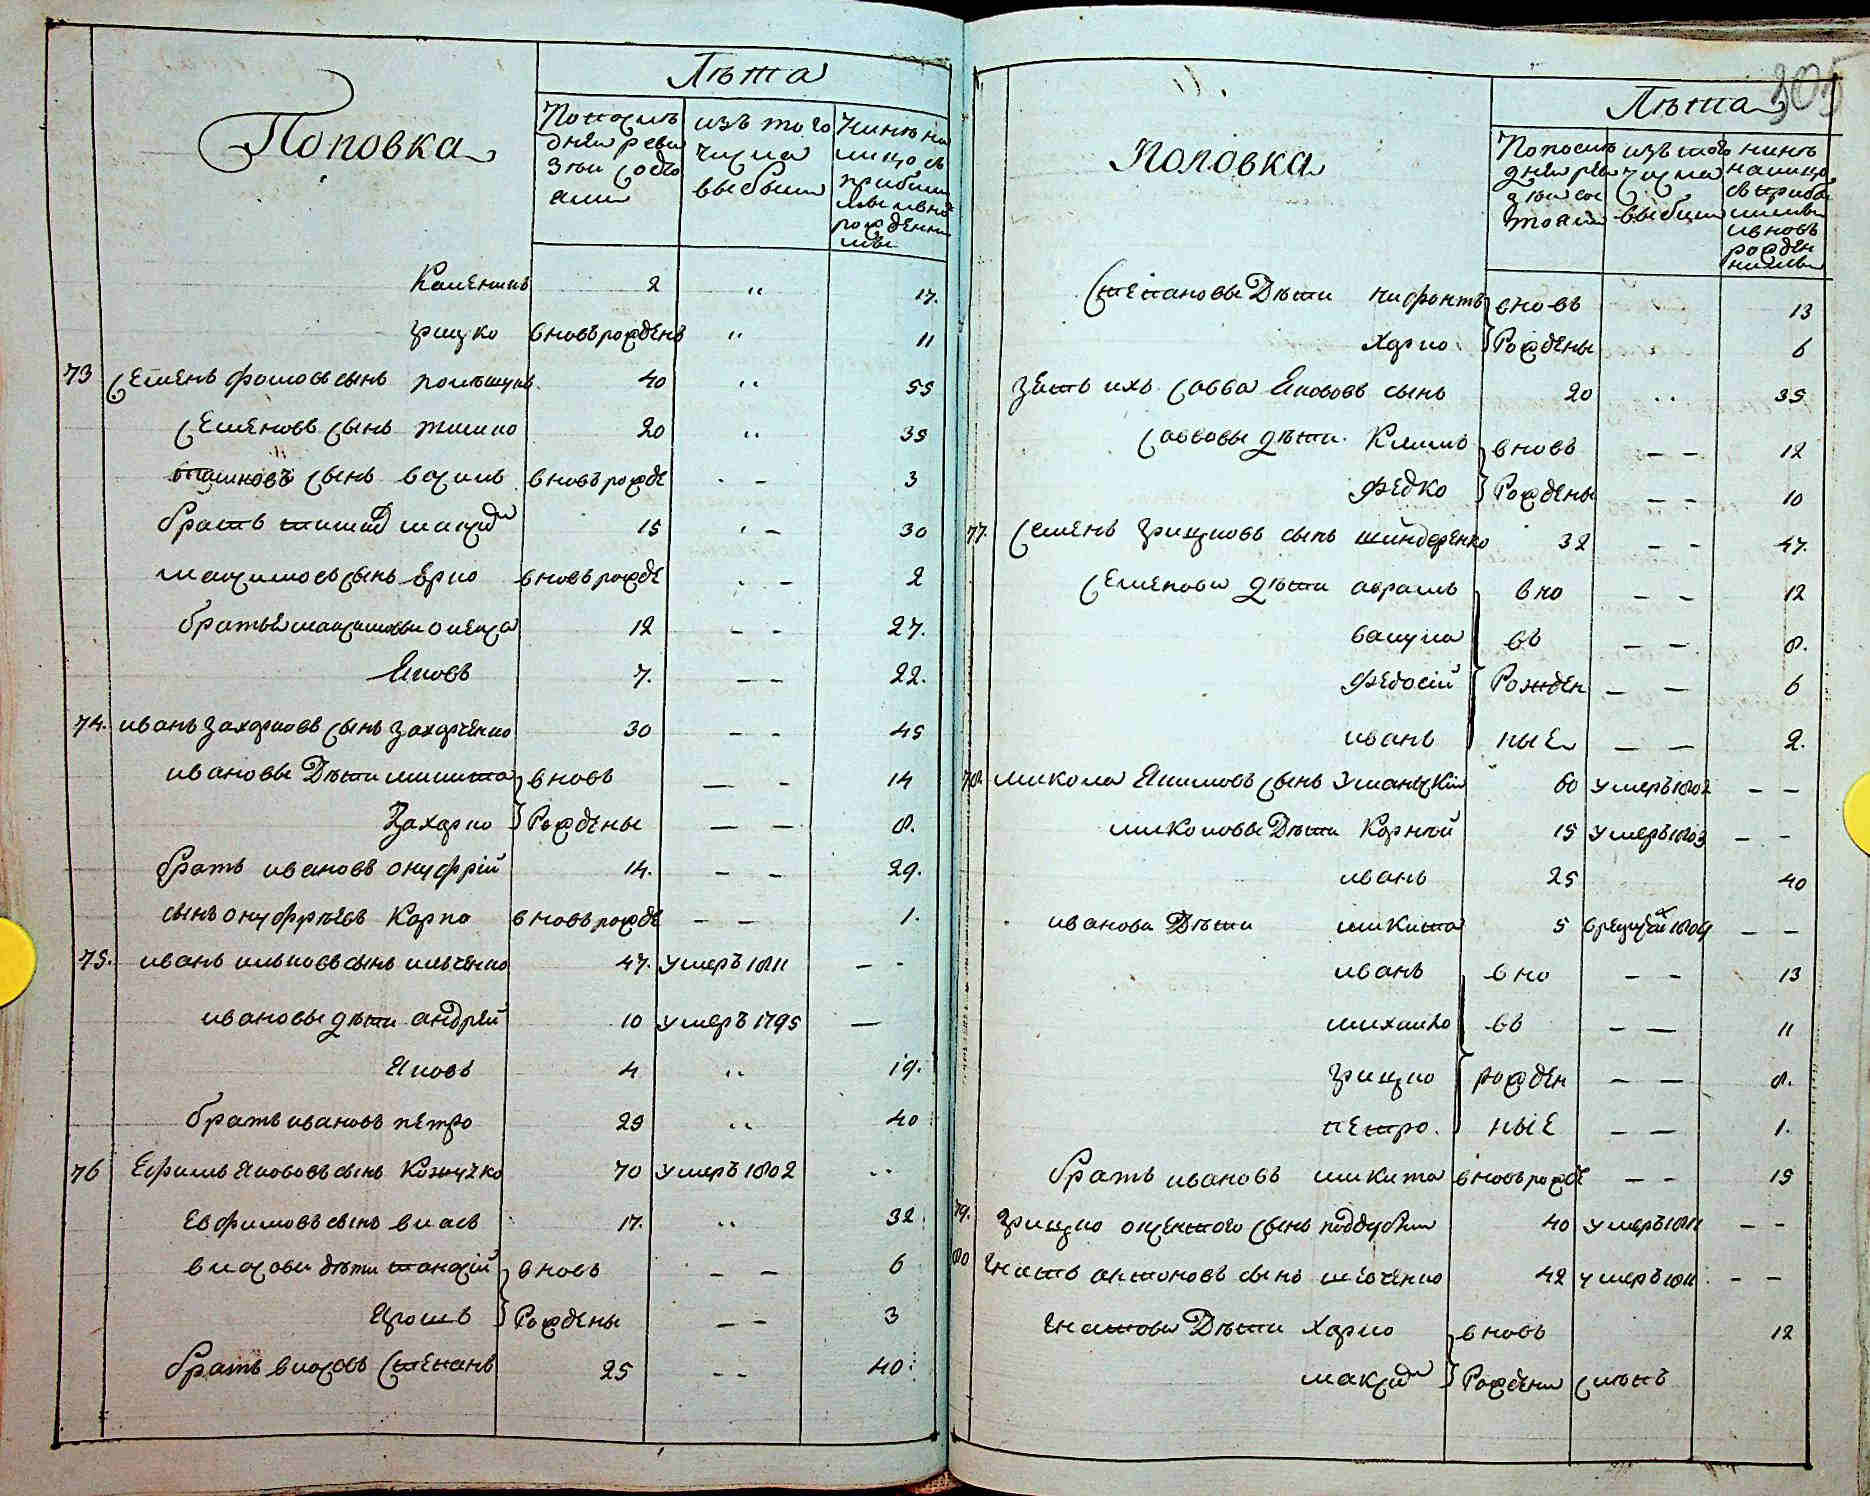 Поповка
Лѣта
По послѣ дней реви зіи состо яли
изъ того числа выбыли
Нинѣ на лицо съ прибыл лыми вно рожденны ми
Климентъ 2 " 17.
грицко вновърожденъ " 11
73 Семенъ фомовъ сынъ 40 " 55
Семеновъ сынъ тимко 20 " 35
тимковъ сынъ василь вновърожде - 3
братъ тимковъ максим 15 - 30
максимовъ сынъ Ярко вновърожде - 2
братья максимовы олекса 12 - - 27.
Яковъ 7. - - 22.
74. иванъ захарковъ сынъ захарченко 30 - - 45
ивановы Дѣти микита вновъ - - 14
Захарко Рождены - - 8.
братъ ивановъ онуфрій 14. - - 29.
сынъ онуфріевъ Карпо вновърожде - - 1.
75. иванъ ильковъ сынъ ильченко 47. умеръ 1811 - -
ивановы дѣти андрей 10 умеръ 1795 -
Яковъ 4 " 19.
братъ ивановъ петро 25 " 40
76 Ефимъ Якововъ сынъ 70 умеръ 1802 "
Евфимовъ сынъ власъ 17. " 32.
власовы дѣти вновъ - - 6
Ярошъ Рождены - - 3
братъ власовъ Степанъ 25 - - 40.
805
Поповка
Лѣта
По послѣ дней рев зіи сос тояли
изъ того числа выбыли
нинѣ налицо съ прибы лыми ивновъ рожден ными
Степановы Дѣти нифонтъ вновъ 13
Харко Рождены 6
Зять ихъ Савва Яковов сынъ 20 " 35
Саввовы дѣти Климъ вновъ - - 12
Федко Рождены - - 10
77. Семенъ грицковъ сынъ 32 - - 47.
Семеновы дѣти абрамъ вно - - 12
вакула въ - - 8.
Федосій Рожден - - 6
иванъ ные - - 2.
78. микола Якимовъ сынъ Уманскій 60 умеръ 1802 - -
миколовы Дѣти Корній 15 умеръ 1803 - -
иванъ 25 40
иванови Дѣти микита 5 - -
иванъ вно - - 13
михайло въ - - 11
грицко рожден - - 8.
петро. ные - - 1.
братъ ивановъ микита вновърожде - - 15
79. грицко сынъ поддубній 40 умеръ 1811 - -
80 Игнатъ антоновъ сынъ шевченко 42 умеръ 1811 - -
Игнатови Дѣти Харко вновъ 12
максим Рождени